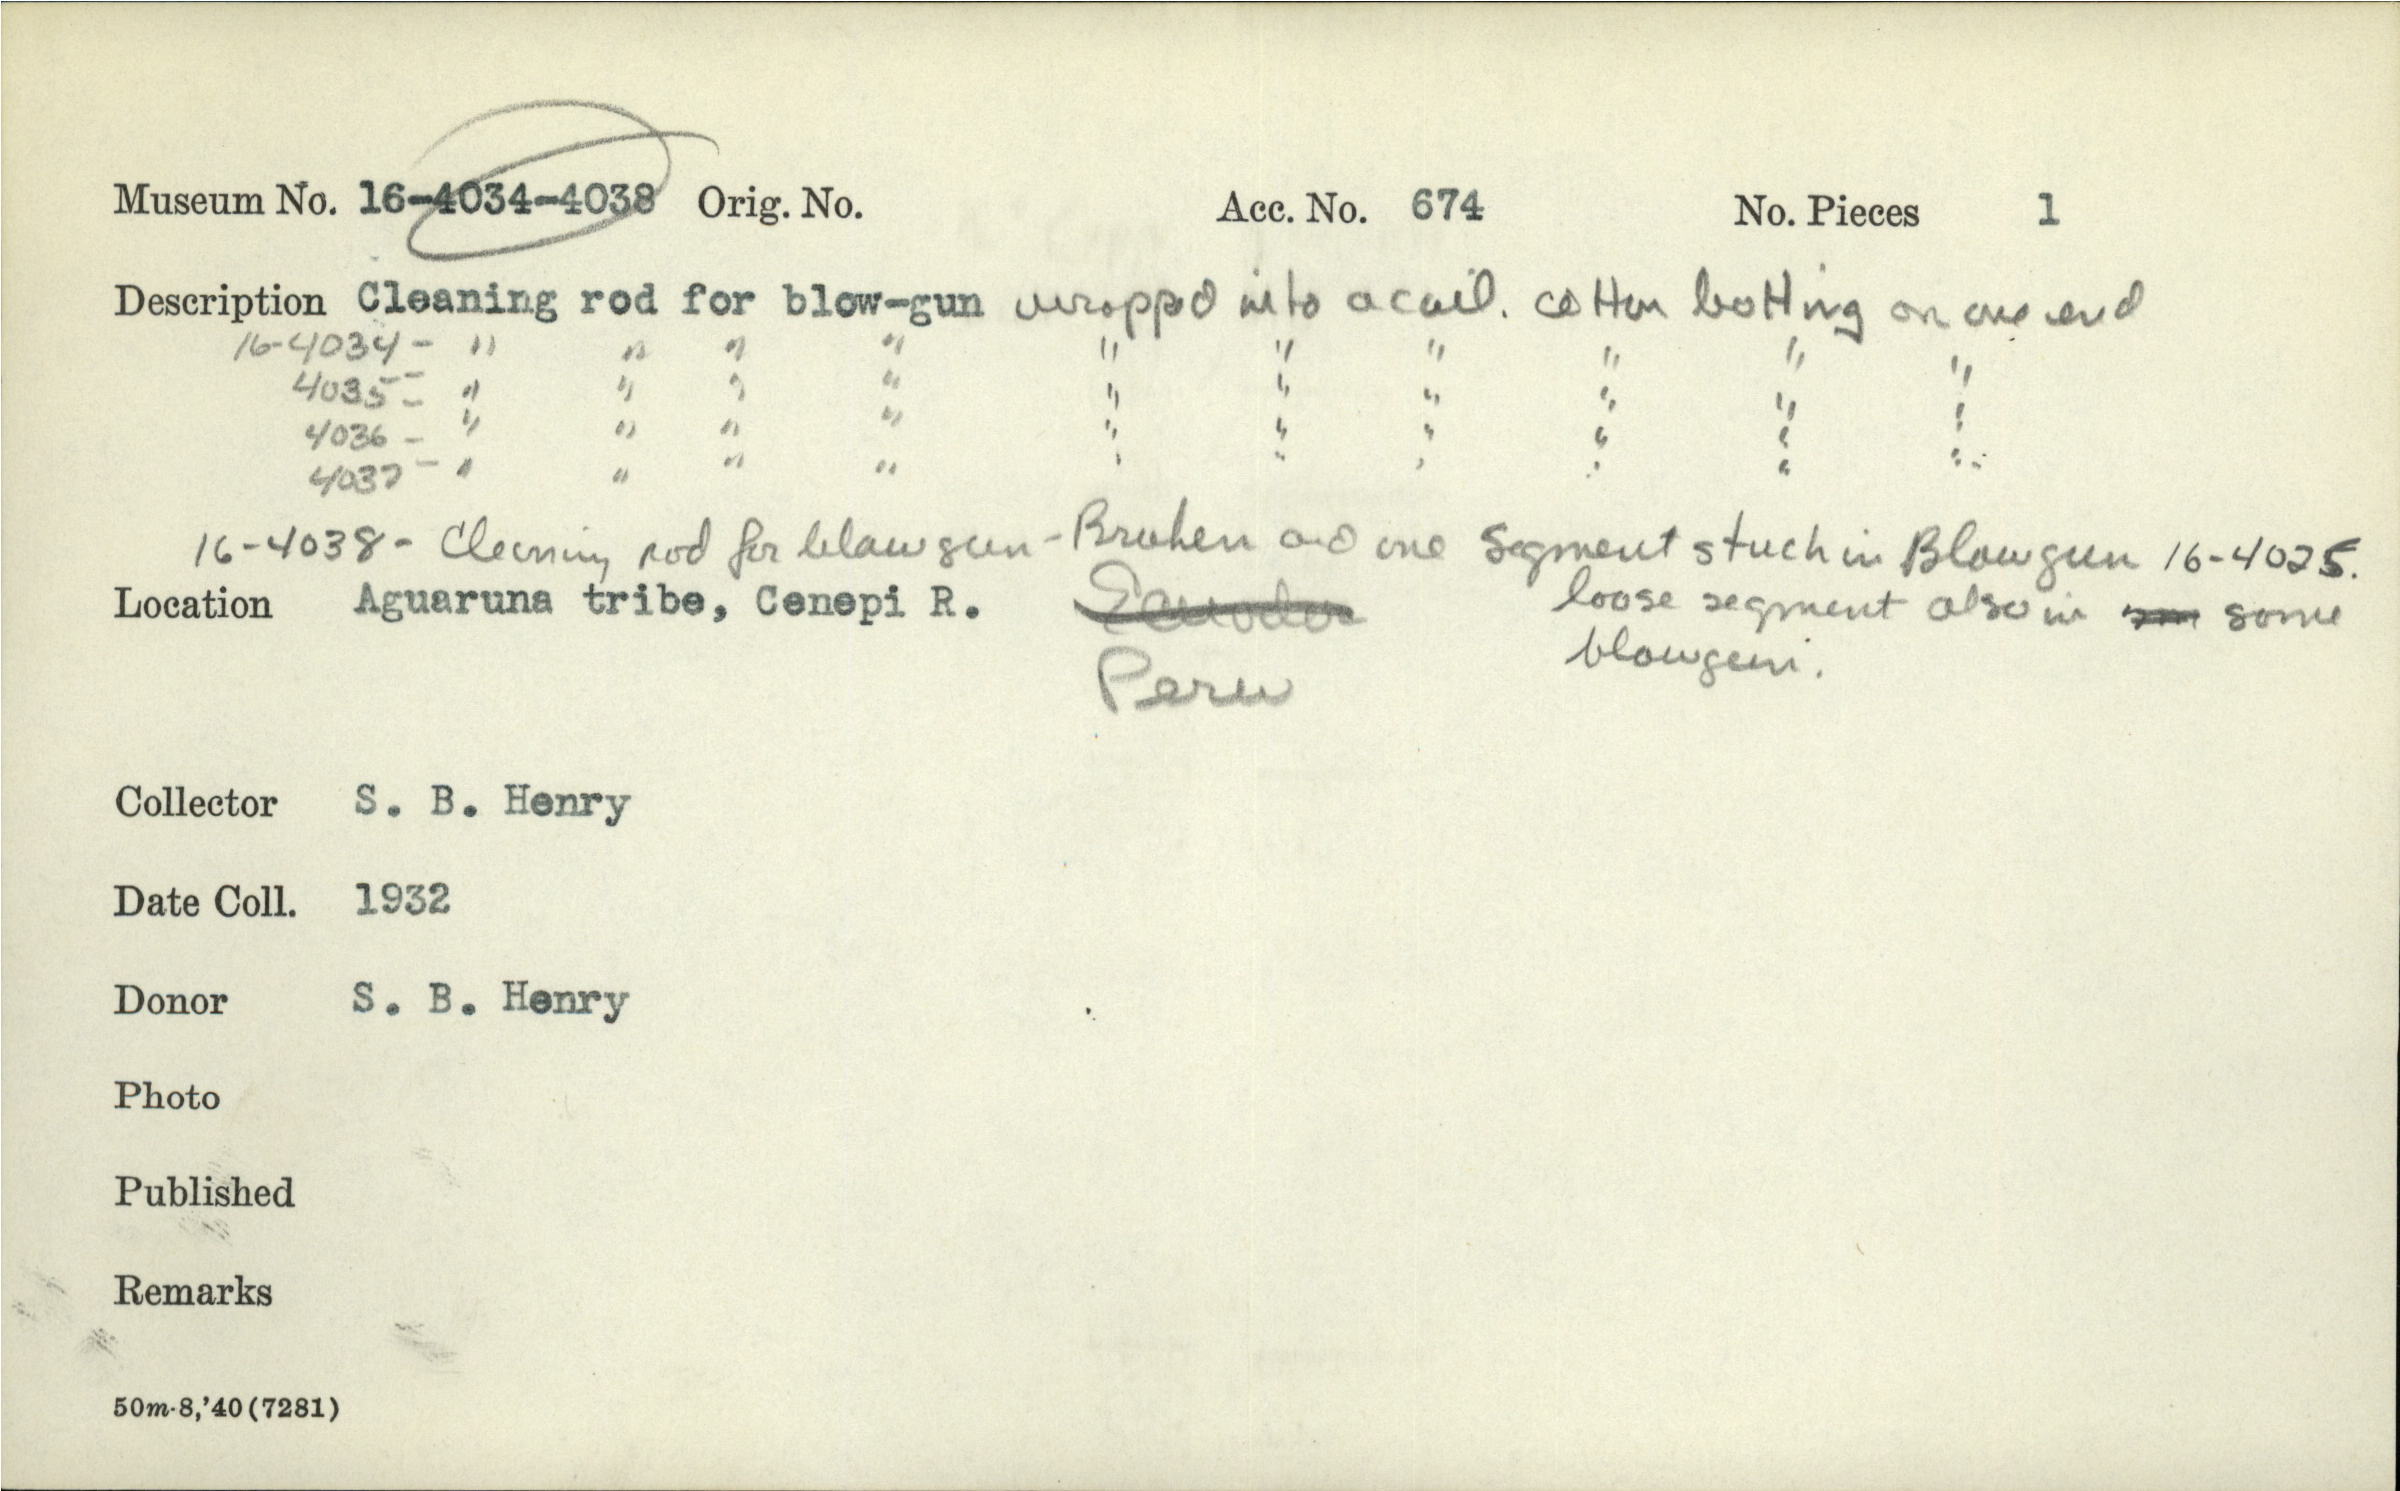 Museum No. 16-4034-4038 Orig. No. Acc. No. 674 No. Pieces 1
Description Cleaning rod for blow-gun wrapped into a coil. cotton batting on one end
16-4034 - " " " " " " " " " "
4035 - " " " " " " " " " "
4036 - " " " " " " " " " "
4037 - " " " " " " " " " "
16-4038 - Cleaning rod for blowgun - Broken and one segment stuck in Blowgun 16-4025.
Location Aguaruna tribe, Cenepi R. Ecuador loose segment also in some
Peru blowgun.
Collector S. B. Henry
Date Coll. 1932
Donor S. B. Henry
Photo
Published
Remarks
50m-8,'40(7281)